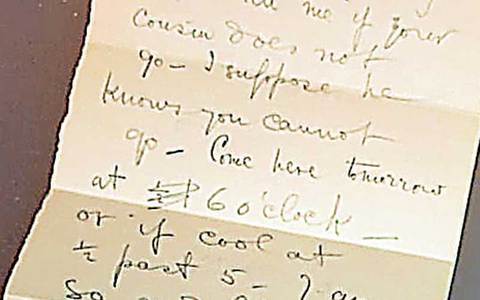 me if your
cousin does not
go - I suppose he
knows you cannot
go - Come here tomorrow
at 6 o'clock -
or if cool at
½ past 5 - I
so